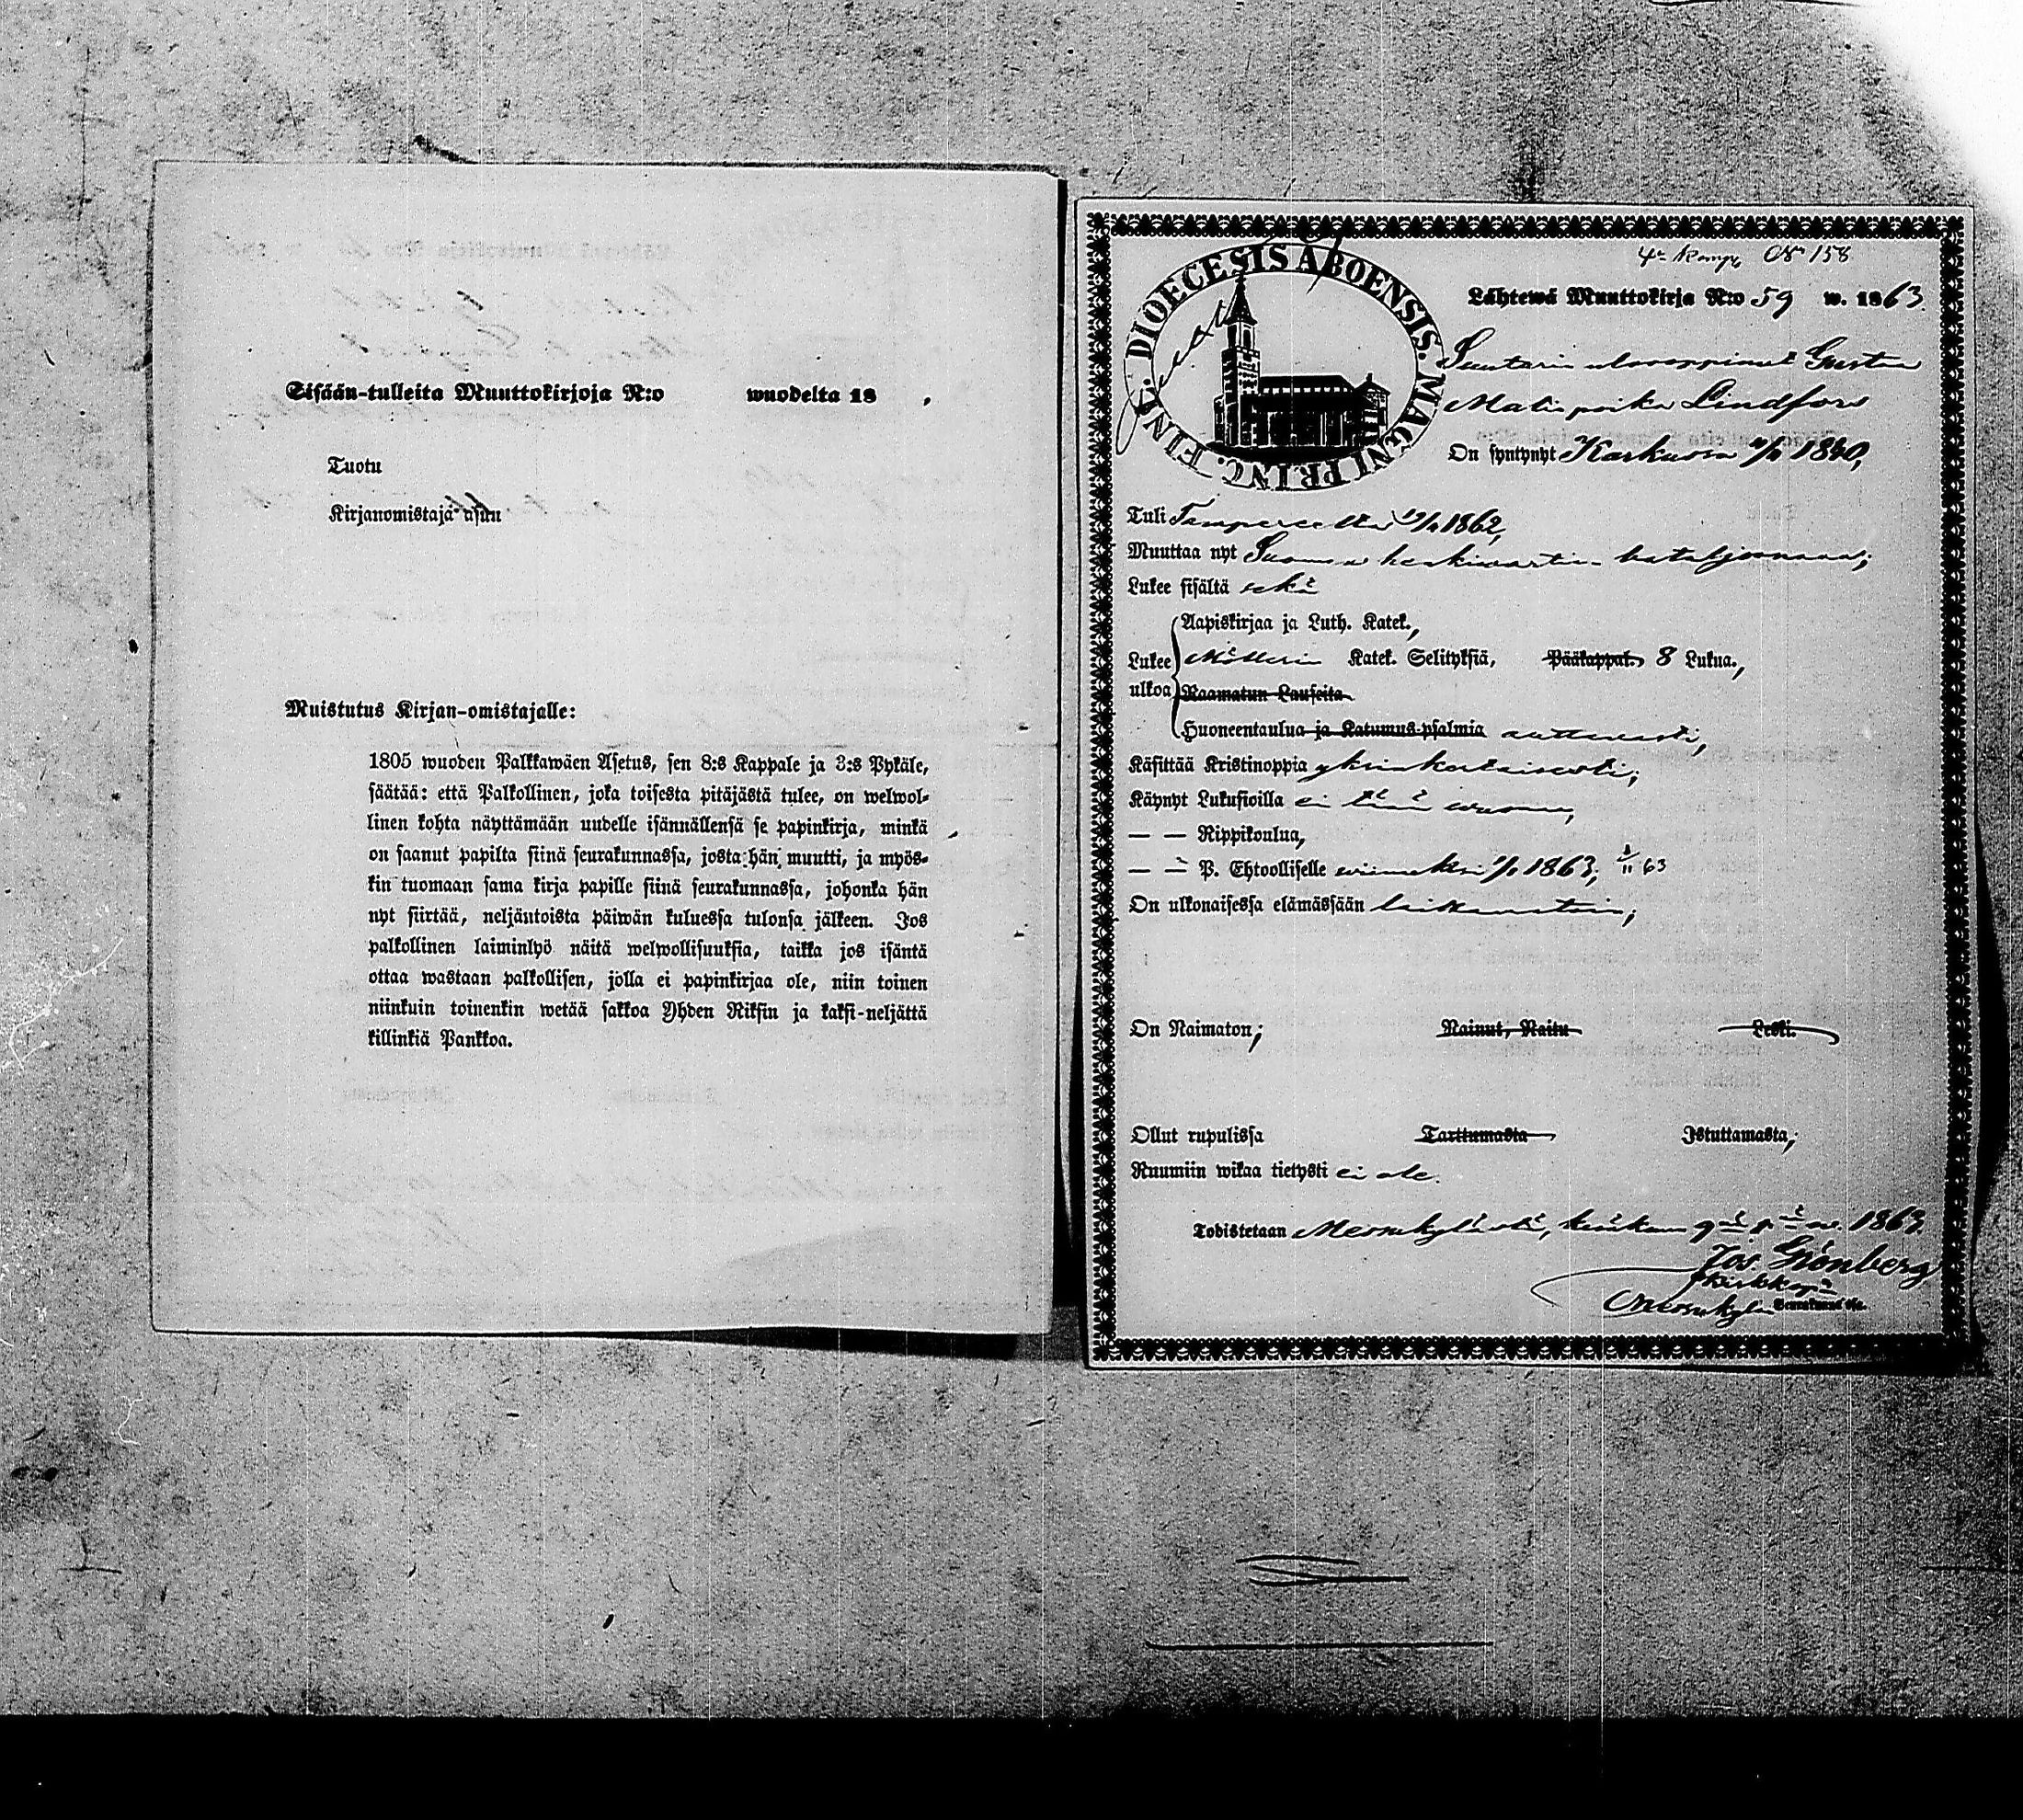 Sisään-tulleita Muuttokirjoja N:o wuodelta 18 .
Tuotu
Kirjanomistaja asuu
Muistutus Kirjan-omistajalle:
1805 wuoden Palkkawäen Asetus, sen 8:s Kappale ja 3:s Pykäle,
säätää: että Palkollinen, joka toisesta pitäjästä tulee, on welwol-
linen kohta näyttämään uudelle isännällensä se papinkirja, minkä
on saanut papilta siinä seurakunnassa, josta hän muutti, ja myös-
kin tuomaan sama kirja papille siinä seurakunnassa, johonka hän
nyt siirtää, neljäntoista päiwän kuluessa tulonsa jälkeen. Jos
palkollinen laiminlyö näitä welwollisuuksia, taikka jos isäntä
ottaa wastaan palkollisen, jolla ei papinkirjaa ole, niin toinen
niinkuin toinenkin wetää sakkoa Yhden Riksin ja kaksi-neljättä
killinkiä Pankkoa.
DIOECESIS ABOENSIS. MAGNI PRINC. FINL.
4e Komp. No 158
Lähtewä Muuttokirja N:o 59 w. 1863.
Suutarin Gustaa
Matinpoika Lindfors
On syntynyt Karkussa 1840,
Tuli Tampereelta 1862,
Muuttaa nyt Suomen kaskiwartia-bataljonaan;
Lukee sisältä sekä
Aapiskirjaa ja Luth. Katek.,
Lukee Möllerin Katek. Selityksiä, Pääkappal. 8 Lukua.,
ulkoa Raamatun Lauseita
Huoneentaulua ja Katumus-psalmia auttawasti,
Käsittää Kristinoppia yksinkertaisesti;
Käynyt Lukusioilla ei tänä wuonna,
— — Rippikoulua,
— — P. Ehtoolliselle wiimeksi 1863; 63
On ulkonaisessa elämässään laittamatoin;
On Naimaton; Nainut, Naitu Leski.
Ollut rupulissa Tarttumasta Istuttamasta;
Ruumiin wikaa tietysti ei ole.
Todistetaan Messukylästä, kesäkuun 9 p. 1863.
Jos. Grönberg
Kirkkoh.
Messukylän Seurakunnassa.